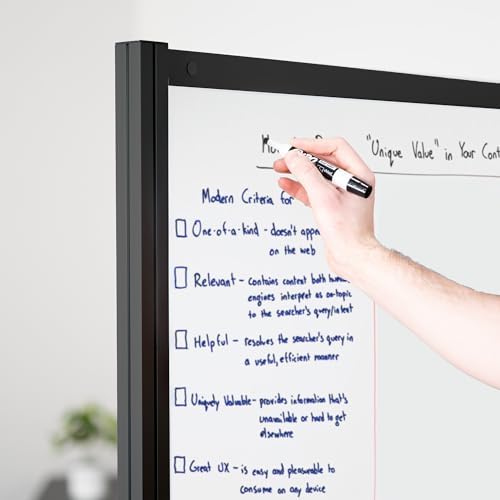 "Unique Value" in Your
Modern Criteria for
One-of-a-kind - doesn't
on the web
Relevant - contains content both
engines interpret as on-topic
to the searcher's query/intent
Helpful - resolves the searcher's query in
a useful, efficient manner
Uniquely Valuable - provides information that's
unavailable or hard to get
elsewhere
Great UX - is easy and pleasurable to
consume on any device